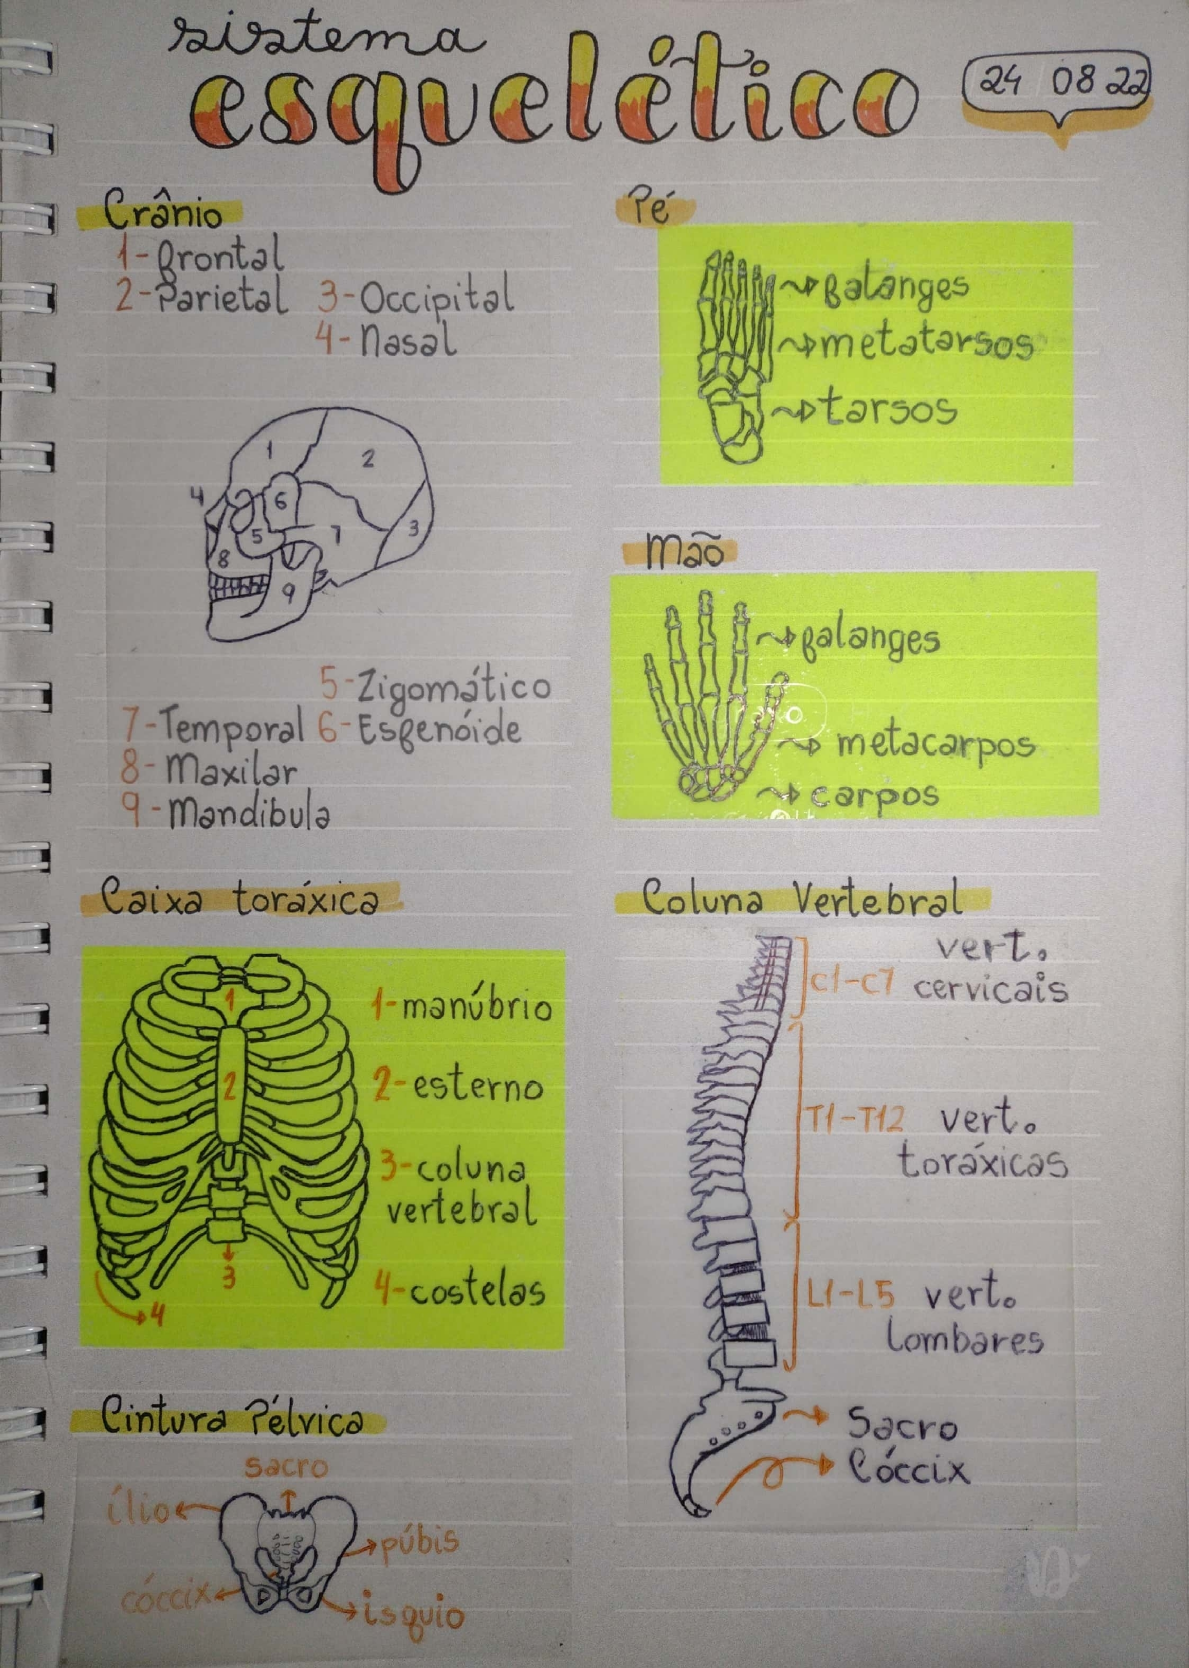 sistema
esquelético
24 08 22
Crânio
1-frontal
2-Parietal 3-Occipital
4-nasal
1
2
3
4
5
6
7
8
9
5-Zigomático
7-Temporal 6-Esfenóide
8-maxilar
9-mandibula
Pé
falanges
metatarsos
tarsos
mão
falanges
metacarpos
carpos
Caixa toráxica
1
2
3
4
1-manúbrio
2-esterno
3-coluna
vertebral
4-costelas
Coluna Vertebral
C1-C7 vert.
cervicais
T1-T12 vert.
toráxicas
L1-L5 vert.
lombares
Sacro
Cóccix
Cintura Pélvica
sacro
ílio
púbis
cóccix
isquio